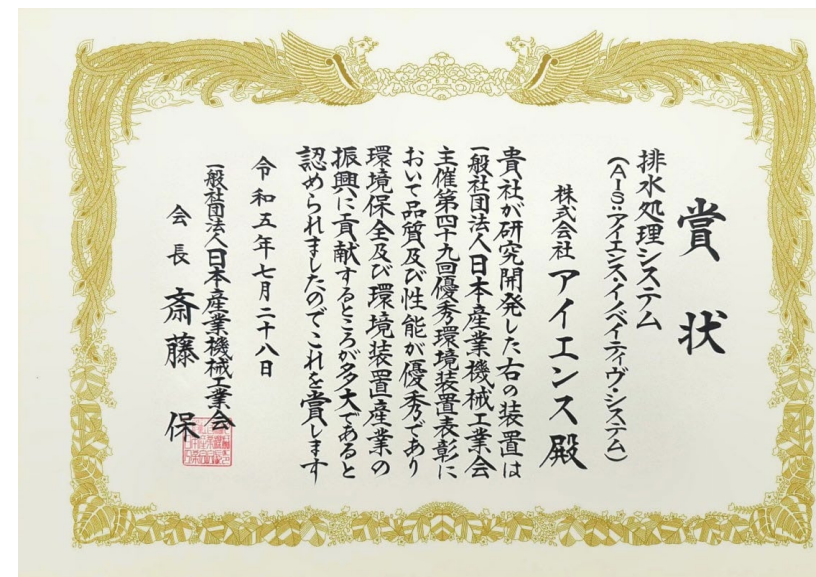 賞状
排水処理システム
(AIS:アイエンス・イノベイティヴ・システム)
株式会社 アイエンス殿
貴社が研究開発した右の装置は
一般社団法人日本産業機械工業会
主催第四十九回優秀環境装置表彰に
おいて品質及び性能が優秀であり
環境保全及び環境装置産業の
振興に貢献するところが多大であると
認められましたのでこれを賞します
令和五年七月二十八日
一般社団法人日本産業機械工業会
会長 斎藤 保